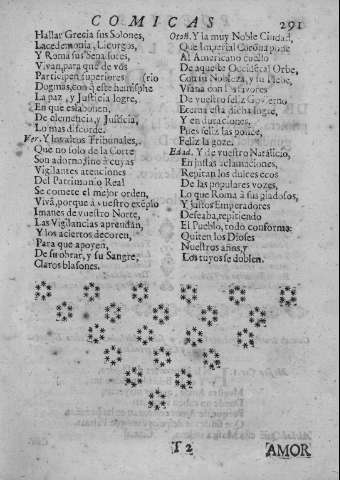 COMICAS
291
Hallar Grecia sus Solones,
Lacedemonia, Licurgos,
Y Roma sus Senadores,
Vivan, para que de vos
Participen superiores (rio
Dogmas, con q̃ este hemisphe
La paz, y Justicia logre,
En que eslabonen,
De clemencia, y Justicia,
Lo mas discorde.
Ver. Y las altos Tribunales,
Que no solo de la Corte
Son adorno, sino à cuyas
Vigilantes atenciones
Del Patrimonio Real
Se comete el mejor orden,
Vivã, porque à vuestro exẽplo
Imanes de vuestro Norte,
Las Vigilancias aprendan,
Y los aciertos decoren,
Para que apoyen,
De su obrar, y su Sangre,
Claros blasones.
Otoñ. Y la muy Noble Ciudad,
Que Imperial Corona pone
Al Americano cuello
De aqueste Occidẽtal Orbe,
Con su Nobleza, y su Plebe,
Viana con
De vuestro feliz Govierno
Eterna esta dicha logre,
Y en duraciones,
Pues feliz las
Feliz la goze.
Edad. Y de vuestro Natalicio,
En justas aclamaciones,
Repitan los dulces ecos
De las populares vozes,
Lo que Roma à sus piadosos,
Y justos Emperadores
Deseaba, repitiendo
El Pueblo, todo conforme:
Quiten los Dioses
Nuestros años, y
Los tuyos se doblen.
T 2
AMOR